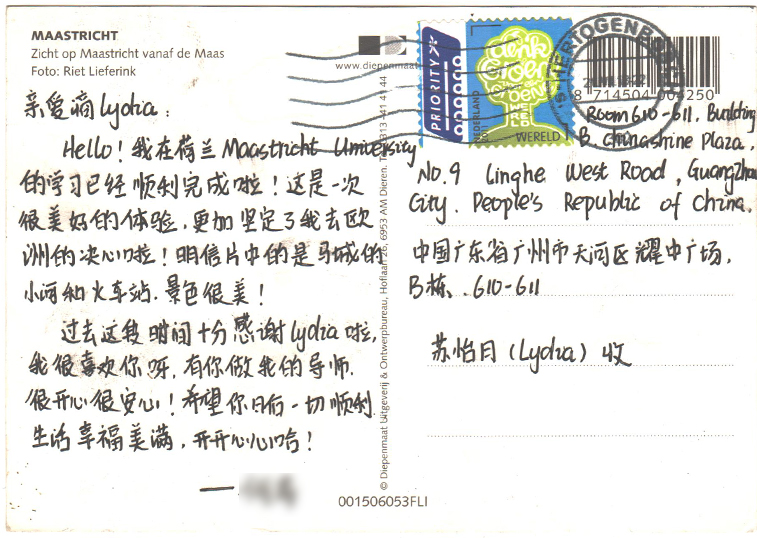 MAASTRICHT
Zicht op Maastricht vanaf de Maas
Foto: Riet Lieferink
www.diepenmaat
PRIORITY
NEDERLAND
2011
denk
Groen
WERELD
'S-HERTOGENBOSCH
8 714504 004250
亲爱滴 Lydia:
Hello! 我在荷兰 Maastricht University
的学习已经顺利完成啦!这是一次
很美好的体验,更加坚定了我去欧
洲的决心啦!明信片中的是马城的
小河和火车站,景色很美!
过去这段时间十分感谢Lydia啦,
我很喜欢你呀,有你做我的导师,
很开心很安心!希望你日后一切顺利
生活幸福美满,开开心心哈!
—
© Diepenmaat Uitgeverij & Ontwerpbureau, Hoflaan 26, 6953 AM Dieren.
Room 610-611, Building
B Chinashine Plaza,
No.9 Linghe West Road, Guangzhou
City. People's Republic of China.
中国广东省广州市天河区耀中广场,
B栋、610-611
苏怡月(Lydia)收
001506053FLI